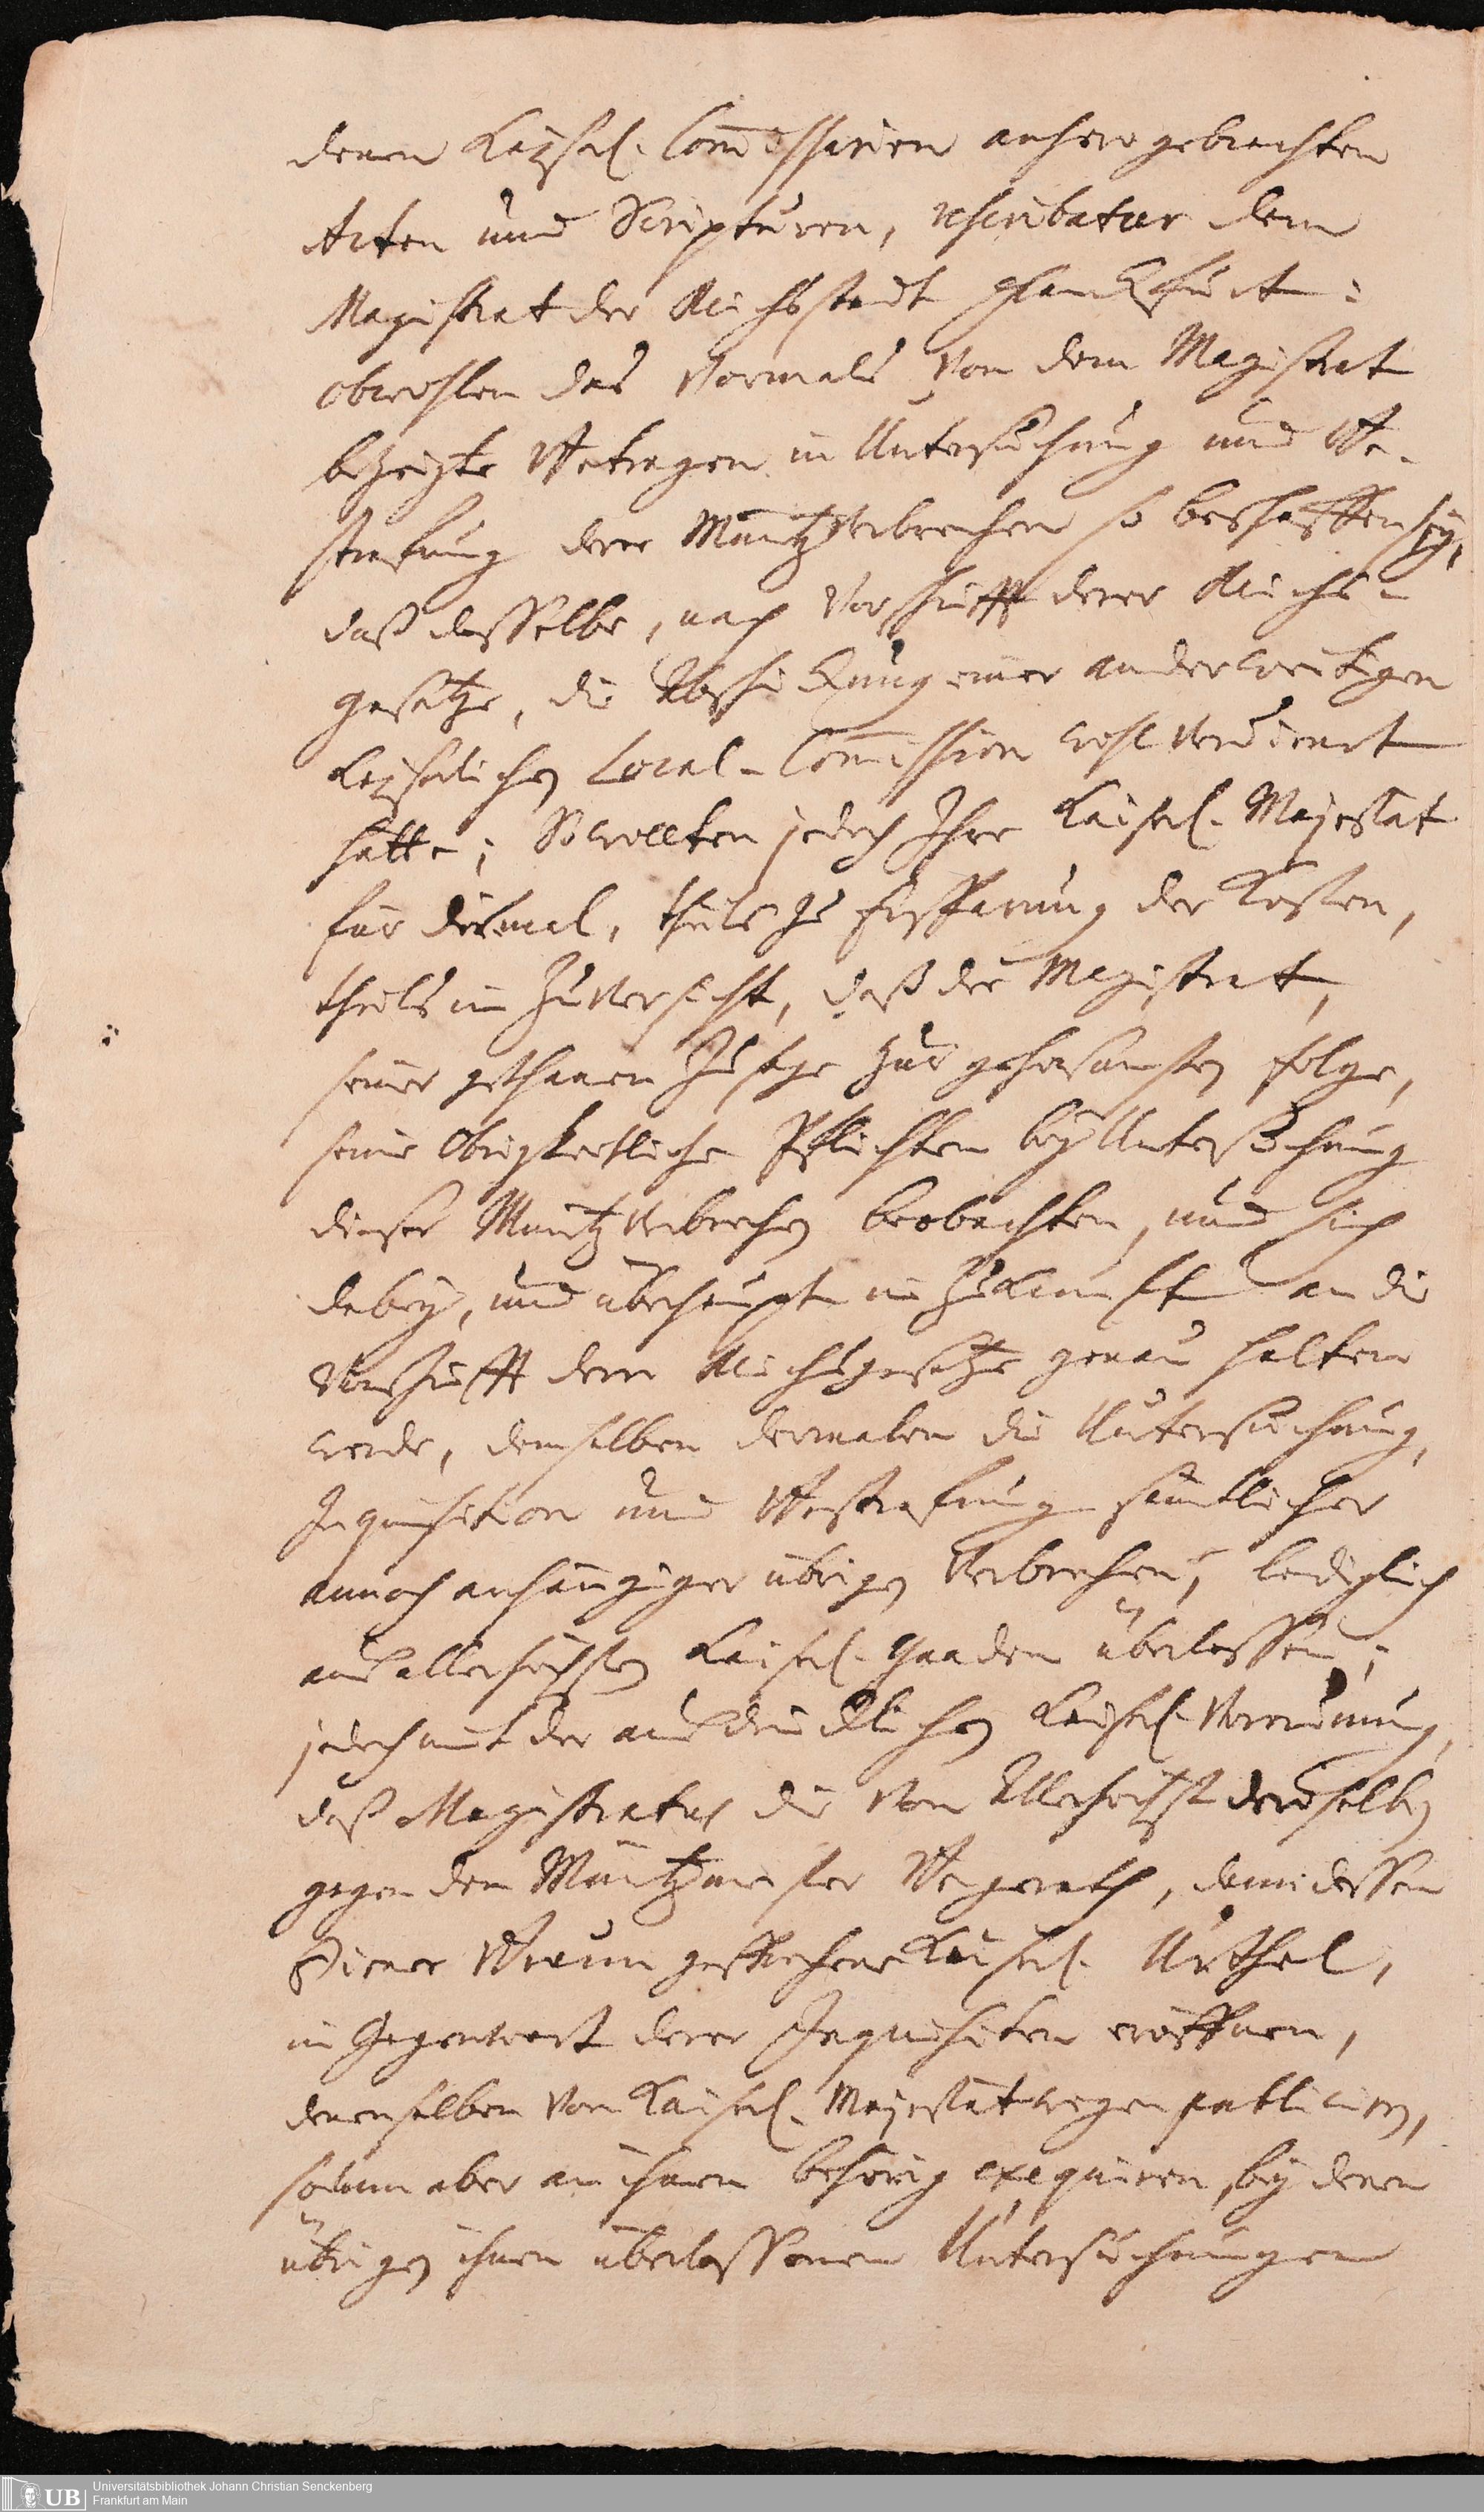 denen Kayserl. Commissarien anhero gebrachten
Acten und Scripturen, rescribatur dem
Magistrat der Reichsstadt Franckfurt:
obwohlen das vormals von dem Magistrat
bezeigte Betragen in Untersuchung und Be-
strafung derer Müntzverbrechen so beschaffen sey,
daß dasselbe, nach Vorschrifft derer Reichs-
gesätze, die Abschickung einer anderweitigen
Kayserlichen Local-Commission wohl verdienet
hätte; So wollten jedoch Ihre Kaiserl. Majestät
für diesmal, theils zu Ersparung der Kosten,
theils in Zuversicht, daß der Magistrat,
seiner gethanen Zusage zur gehorsamsten Folge,
seine Obrigkeitliche Pflichten bey Untersuchung
dieser Müntzverbrechen beobachten, und sich
dabey, und überhaupt in Zukunfft an die
Vorschrifft derer Reichsgesetze genau halten
werde, demselben dermalen die Untersuchung,
Inquisition und Bestrafung sämtlicher
annoch anhängiger übrigen Verbrechen, lediglich
aus allerhöchsten Kaiserl. Gnaden überlassen;
jedoch mit der ausdrücklichen Kaiserl. Verordnung,
daß Magistratus die von Allerhöchst denenselben
gegen den Müntzmeister, dann dessen
Diener gesprochene Kaiserl. Urthel,
in Gegenwart derer Inquisiten eröffnen,
denenselben von Kaiserl. Majestät wegen publiciren,
sodann aber an ihnen behörig exequiren, bey denen
übrigen ihnen überlassenen Untersuchungen
UB Universitätsbibliothek Johann Christian Senckenberg
Frankfurt am Main